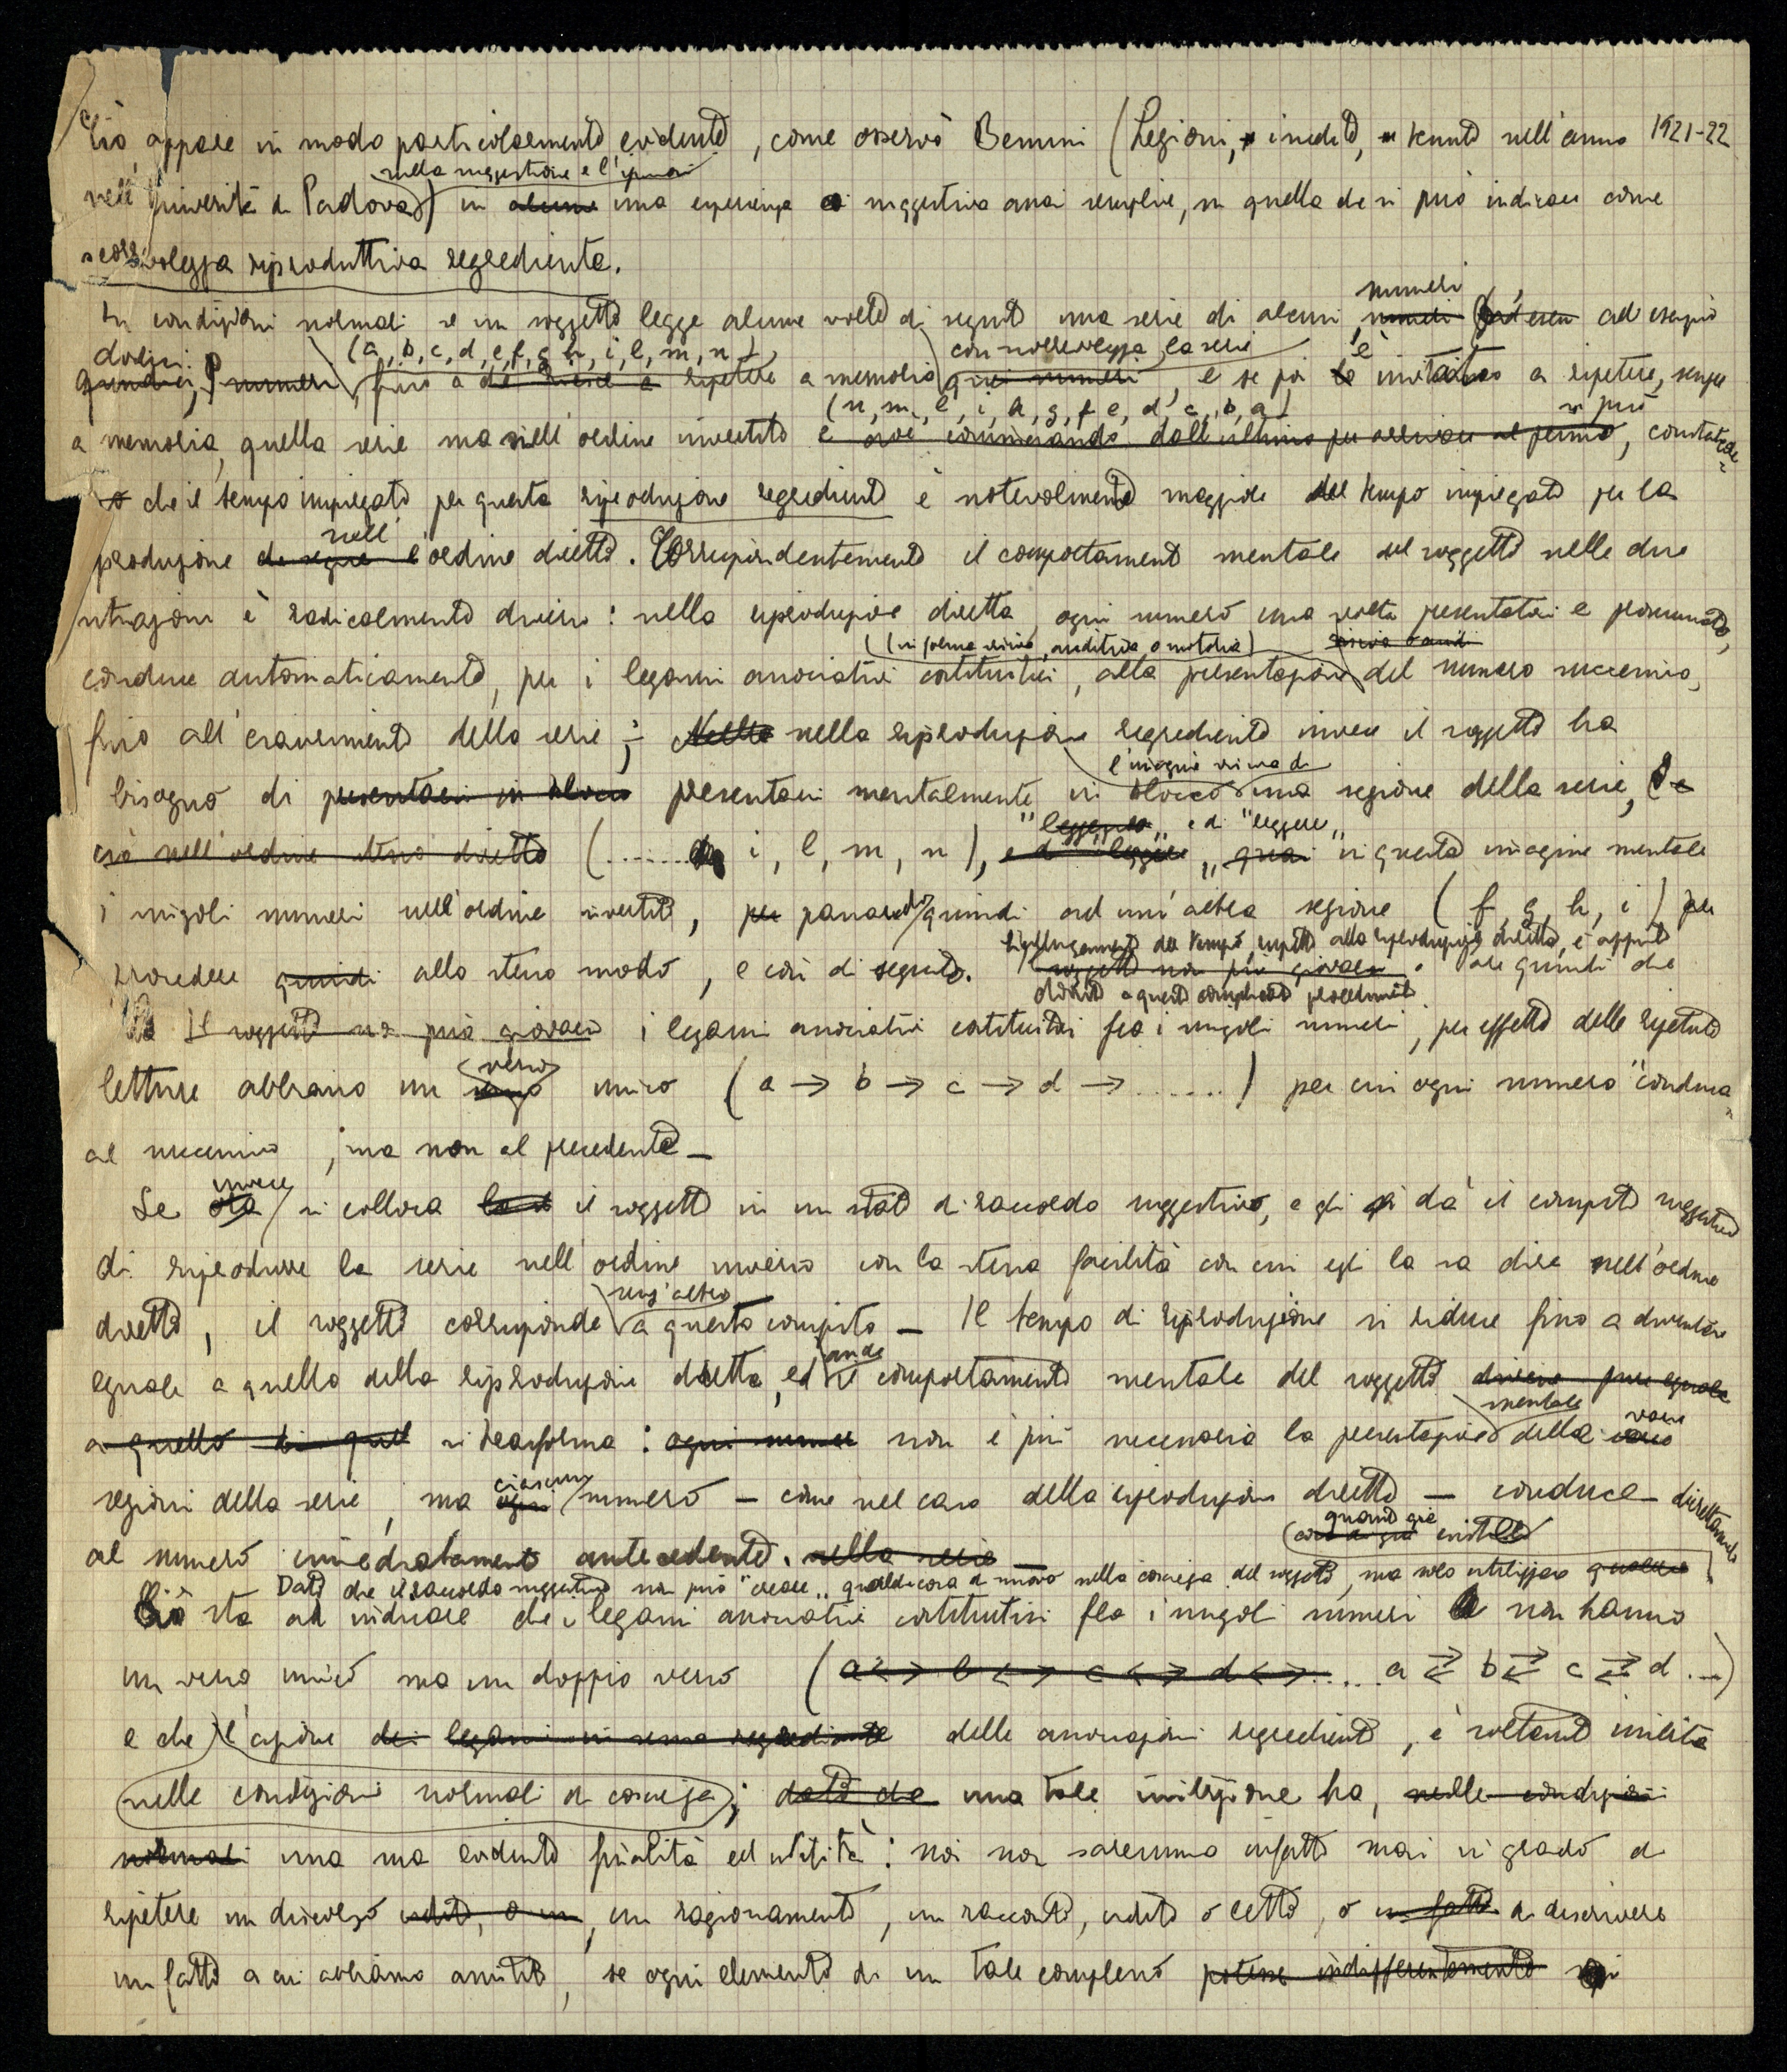 Ciò appare in modo particolarmente evidente, come osservò Benussi (Lezioni, inedite, tenute nell'anno 1921-22
nella suggestione e l'ipnosi
nell'Università di Padova) in alcune una esperienza suggestiva assai semplice, in quella che si può indicare come
scorrevolezza riproduttiva regrediente.
numeri
In condizioni normali se un soggetto legge alcune volte di seguito una serie di alcuni numeri ad esempio
dodici (a, b, c, d, e, f, g, h, i, l, m, n) con scorrevolezza la serie è
quindici, numeri, fino a che riesce a ripetere a memoria quei numeri, e se poi invitato a ripetere, sempre
(n, m, l, i, h, g, f, e, d, c, b, a) si può
a memoria, quella serie ma nell'ordine invertito e cioè cominciando dall'ultimo per arrivare al primo, constatare
che il tempo impiegato per questa riproduzione regrediente è notevolmente maggiore del tempo impiegato per la
nell'
produzione l'ordine diretto. Corrispondentemente il comportamento mentale del soggetto nelle due
situazioni è radicalmente diverso: nella riproduzione diretta ogni numero una volta presentatosi e pronunciato,
(in forma visiva, auditiva, o motoria)
conduce automaticamente, per i legami associativi costituitisi, alla presentazione del numero successivo,
fino all'esaurimento della serie; Nella nella riproduzione regrediente invece il soggetto ha
l'imagine visiva di
bisogno di presentarsi in blocco presentarsi mentalmente in blocco una regione della serie,
"leggere" e di "leggere"
ciò nell'ordine stesso diretto (....... i, l, m, n), e di leggere, quasi in questa imagine mentale
i singoli numeri nell'ordine invertito, per passare quindi ad un'altra regione (f, g, h, i) per
Il prolungamento del tempo, rispetto alla riproduzione diretta, è appunto
procedere quindi allo stesso modo, e così di seguito. soggetto non può giovarsi quindi che
dovuto a questo complicato procedimento
Il soggetto non può giovarsi i legami associativi costituitisi fra i singoli numeri, per effetto delle ripetute
verso
letture abbiano un unico (a → b → c → d → .......) per cui ogni numero "conduca"
al successivo, ma non al precedente —
invece
Se ora si colloca il soggetto in un stato di raccordo suggestivo, e gli si dà il compito suggestivo
di riprodurre la serie nell'ordine inverso con la stessa facilità con cui egli la sa dire nell'ordine
senz'altro
diretto, il soggetto corrisponde a questo compito — Il tempo di riproduzione si riduce fino a diventare
anche
eguale a quello della riproduzione diretta, ed il comportamento mentale del soggetto diviene pure eguale
mentale varie
a quello di quel si trasforma: ogni numero non è più necessaria la presentazione delle varie
ciascun
regioni della serie, ma ogni numero — come nel caso della riproduzione diretta — conduce direttamente
quanto già esisteva
al numero immediatamente antecedente. nella serie —
Dato che il raccordo suggestivo non può "creare" qualche cosa di nuovo nella coscienza del soggetto, ma solo utilizzare
Ciò sta ad indicare che i legami associativi costituitisi fra i singoli numeri non hanno
un verso unico ma un doppio verso (a ↔ b ↔ c ↔ d ↔ ..... a ⇄ b ⇄ c ⇄ d ...)
e che l'azione dei legami in senso regrediente delle associazioni regredienti, è soltanto inibita
nelle condizioni normali di coscienza; dato che una tale inibizione ha, nelle condizioni
normali una sua evidente finalità ed utilità: noi non saremmo infatti mai in grado di
ripetere un discorso udito, o un, un ragionamento, un racconto, udito o letto, o un fatto di descrivere
un fatto a cui abbiamo assistito, se ogni elemento di un tale complesso potesse indifferentemente